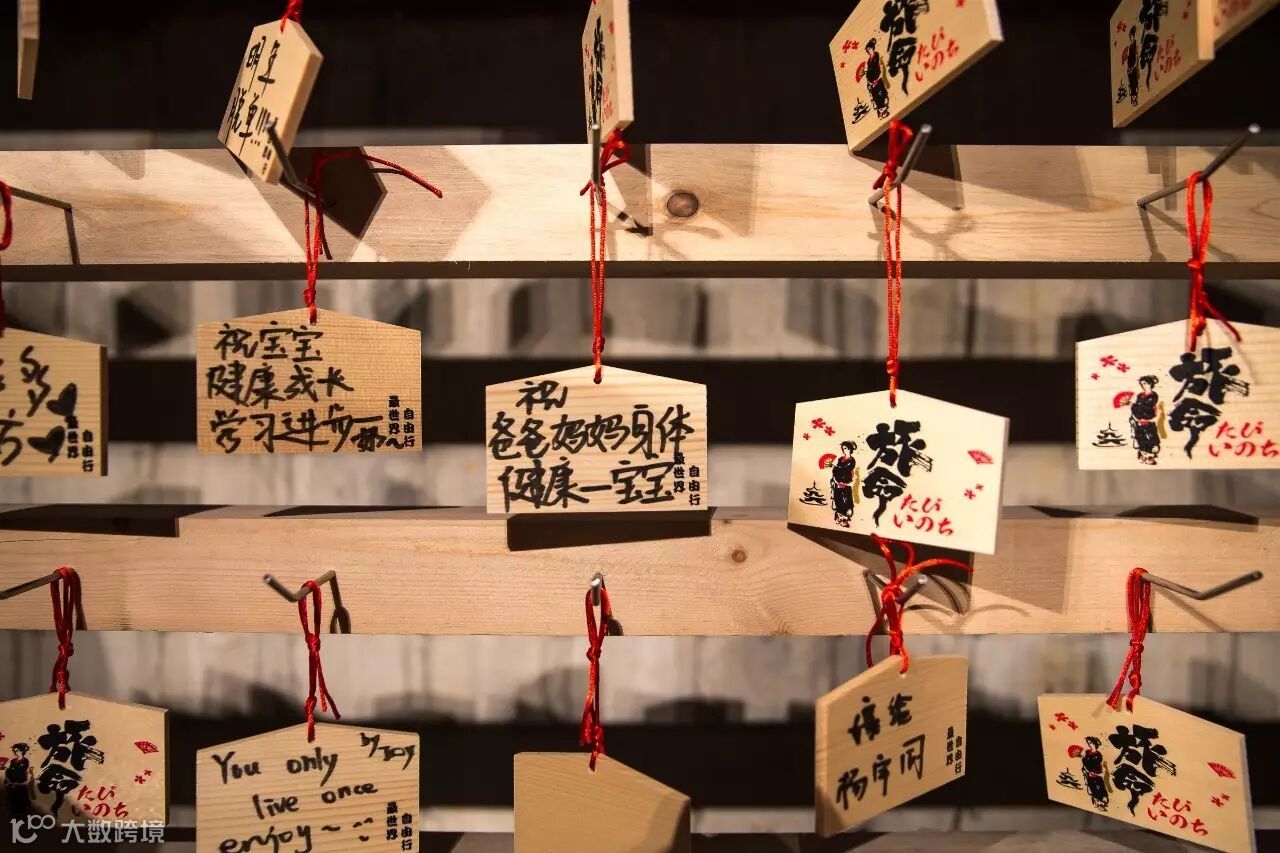 明年
脱单!!!
旅命
たび
いのち
旅命
たび
いのち
祝宝宝
健康成长
学习进步
最世界
自由行
祝
爸爸妈妈身体
健康—宝宝
最世界
自由行
旅命
たび
いのち
旅命
たび
いのち
最世界
自由行
旅命
たび
いのち
You only
live once
enjoy~
by
最世界
自由行
杨宇同
最世界
自由行
旅命
たび
いのち
大数跨境